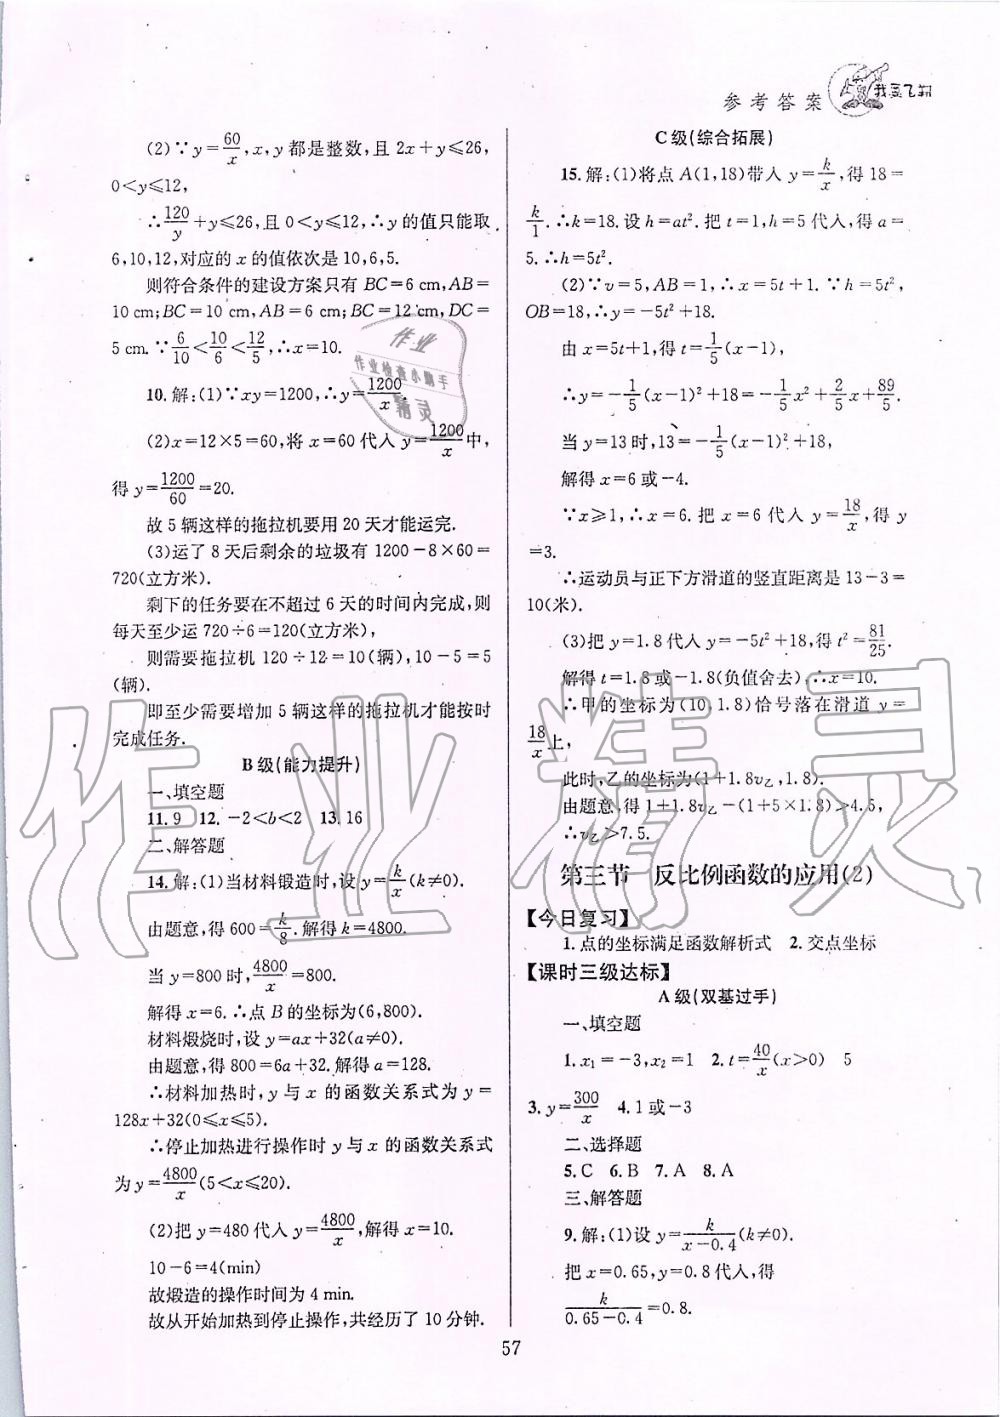 参考答案 我要飞翔
(2)∵y=60/x,x,y都是整数,且2x+y≤26,
0<y≤12,
∴120/y+y≤26,且0<y≤12,∴y的值只能取
6,10,12,对应的x的值依次是10,6,5.
则符合条件的建设方案只有BC=6 cm,AB=
10 cm;BC=10 cm,AB=6 cm;BC=12 cm,DC=
5 cm.∵6/10<10/6<12/5,∴x=10.
10.解:(1)∵xy=1200,∴y=1200/x.
(2)x=12×5=60,将x=60代入y=1200/x中,
得y=1200/60=20.
故5辆这样的拖拉机要用20天才能运完.
(3)运了8天后剩余的垃圾有1200-8×60=
720(立方米).
剩下的任务要在不超过6天的时间内完成,则
每天至少运720÷6=120(立方米),
则需要拖拉机120÷12=10(辆),10-5=5
(辆).
即至少需要增加5辆这样的拖拉机才能按时
完成任务.
B级(能力提升)
一、填空题
11.9 12.-2<b<2 13.16
二、解答题
14.解:(1)当材料锻造时,设y=k/x(k≠0),
由题意,得600=k/8.解得k=4800.
当y=800时,4800/x=800,
解得x=6.∴点B的坐标为(6,800).
材料煅烧时,设y=ax+32(a≠0).
由题意,得800=6a+32.解得a=128.
∴材料加热时,y与x的函数关系式为y=
128x+32(0≤x≤5).
∴停止加热进行操作时y与x的函数关系式
为y=4800/x(5<x≤20).
(2)把y=480代入y=4800/x,解得x=10.
10-6=4(min)
故煅造的操作时间为4 min.
故从开始加热到停止操作,共经历了10分钟.
C级(综合拓展)
15.解:(1)将点A(1,18)带入y=k/x,得18=
k/1.∴k=18.设h=at².把t=1,h=5代入,得a=
5.∴h=5t².
(2)∵v=5,AB=1,∴x=5t+1.∵h=5t²,
OB=18,∴y=-5t²+18.
由x=5t+1,得t=1/5(x-1),
∴y=-1/5(x-1)²+18=-1/5x²+2/5x+89/5.
当y=13时,13=-1/5(x-1)²+18,
解得x=6或-4.
∵x≥1,∴x=6.把x=6代入y=18/x,得y
=3.
∴运动员与正下方滑道的竖直距离是13-3=
10(米).
(3)把y=1.8代入y=-5t²+18,得t²=81/25.
解得t=1.8或-1.8(负值舍去),∴x=10.
∴甲的坐标为(10,1.8)恰号落在滑道y=
18/x上,
此时,乙的坐标为(1+1.8v乙,1.8).
由题意,得1+1.8v乙-(1+5×1.8)>4.5,
∴v乙>7.5.
第三节 反比例函数的应用(2)
【今日复习】
1.点的坐标满足函数解析式 2.交点坐标
【课时三级达标】
A级(双基过手)
一、填空题
1.x₁=-3,x₂=1 2.t=40/x(x>0) 5
3.y=300/x 4.1或-3
二、选择题
5.C 6.B 7.A 8.A
三、解答题
9.解:(1)设y=k/(x-0.4)(k≠0).
把x=0.65,y=0.8代入,得
k/(0.65-0.4)=0.8.
57
作业
作业检查小助手
精灵
作业精灵